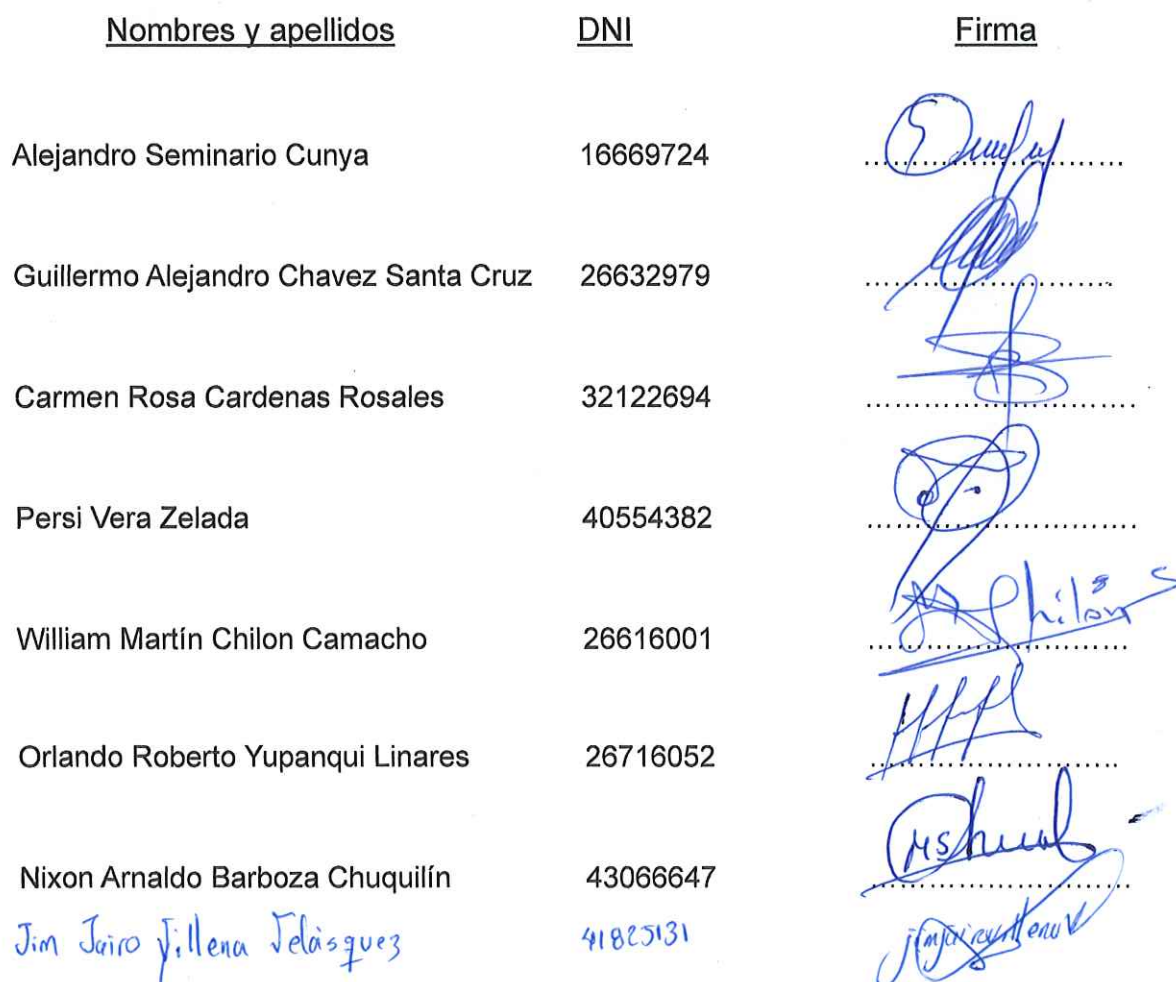 Nombres y apellidos DNI Firma
Alejandro Seminario Cunya 16669724
Guillermo Alejandro Chavez Santa Cruz 26632979
Carmen Rosa Cardenas Rosales 32122694
Persi Vera Zelada 40554382
William Martín Chilon Camacho 26616001
Orlando Roberto Yupanqui Linares 26716052
Nixon Arnaldo Barboza Chuquilín 43066647
Jim Jairo Villena Velásquez 41825131